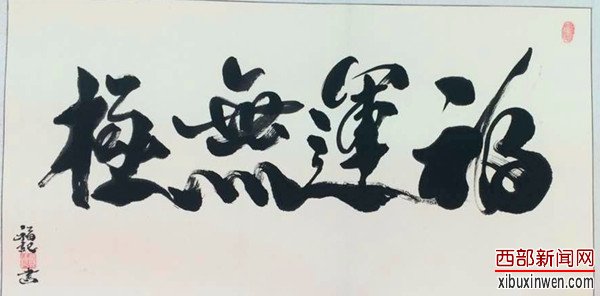 福運無極
書
西部新闻网
xibuxinwen.com